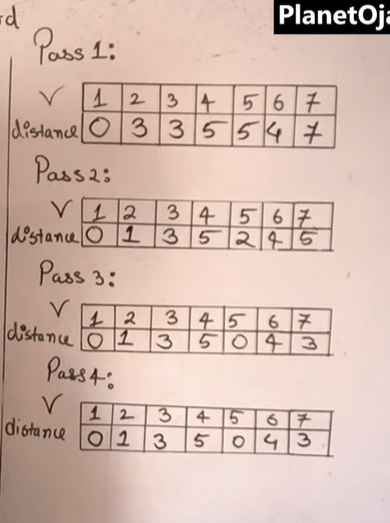 PlanetOja
Pass 1:
V 1 2 3 4 5 6 7
distance 0 3 3 5 5 4 7
Pass2:
V 1 2 3 4 5 6 7
distance 0 1 3 5 2 4 5
Pass 3:
V 1 2 3 4 5 6 7
distance 0 1 3 5 0 4 3
Pass4:
V 1 2 3 4 5 6 7
distance 0 1 3 5 0 4 3